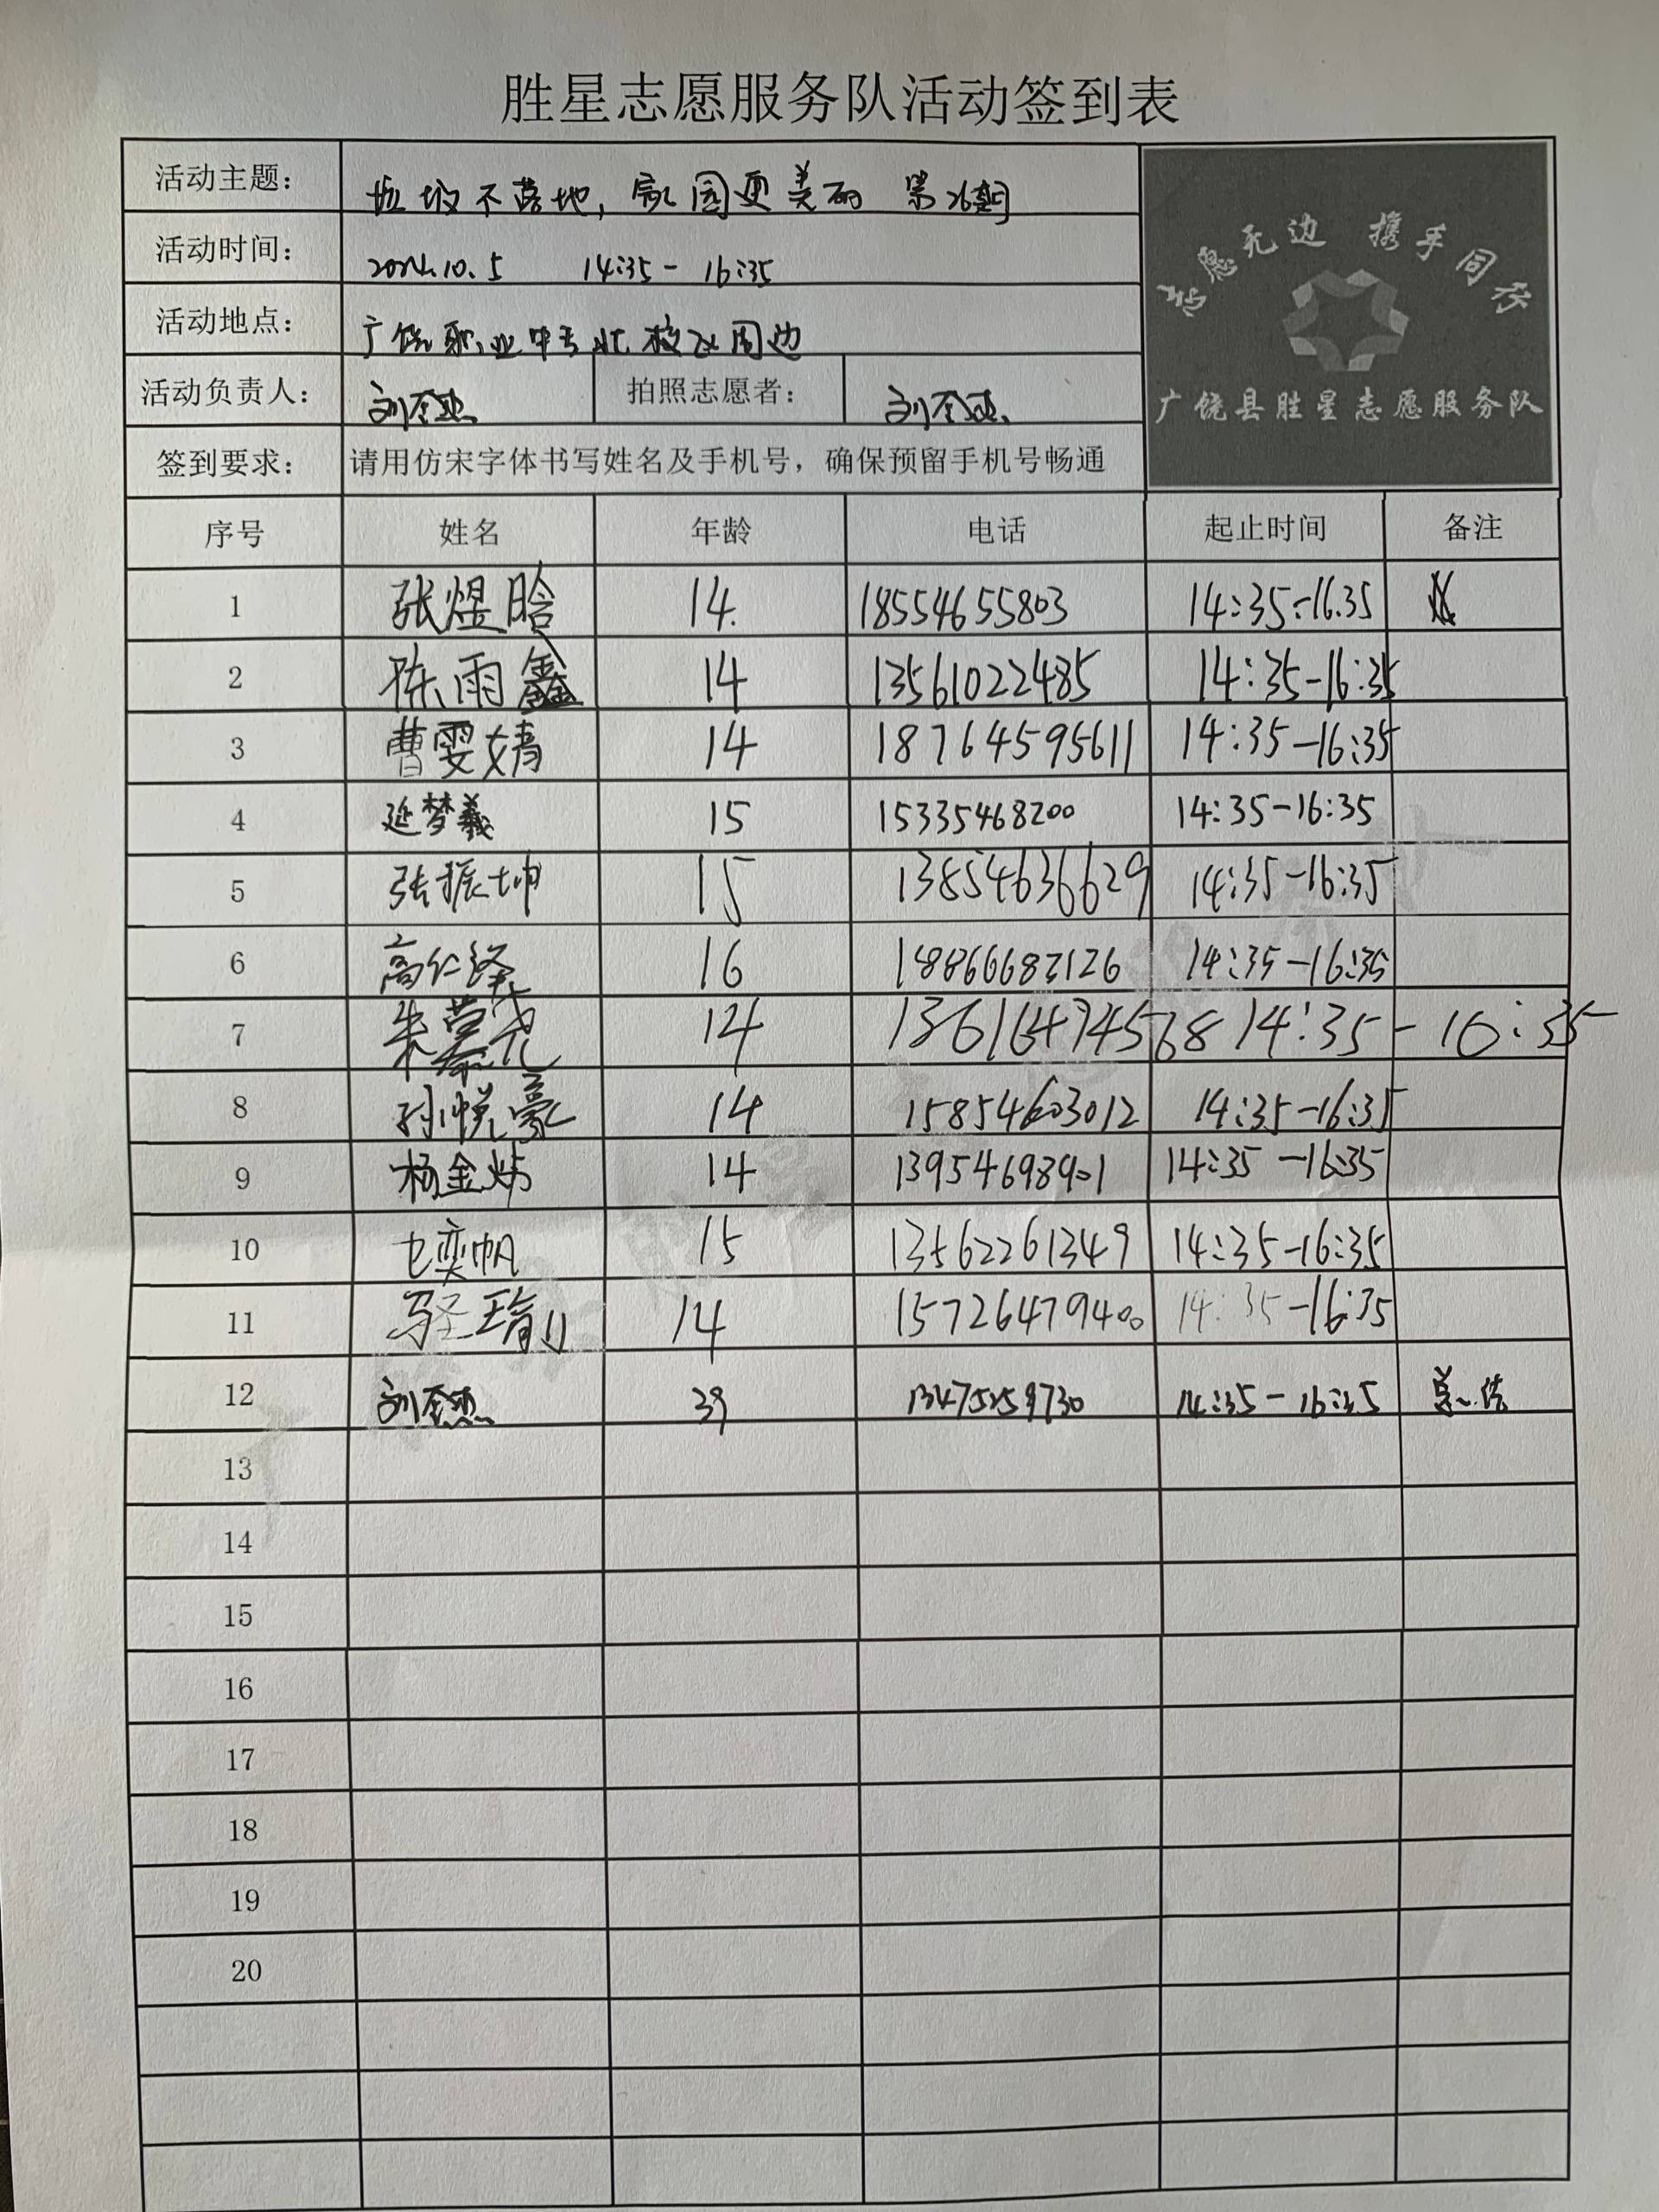 胜星志愿服务队活动签到表
活动主题: 垃圾不落地,家园更美丽 第26期
志愿无边 携手同行
广饶县胜星志愿服务队
活动时间: 2024.10.5 14:35-16:35
活动地点: 广饶职业中专北校及周边
活动负责人: 刘全杰 拍照志愿者: 刘全杰
签到要求: 请用仿宋字体书写姓名及手机号,确保预留手机号畅通
序号 姓名 年龄 电话 起止时间 备注
1 张煜晗 14. 18554655803 14:35-16.35
2 陈雨鑫 14 13561022485 14:35-16:35
3 曹雯婧 14 18764595611 14:35-16:35
4 延梦羲 15 15335468200 14:35-16:35
5 张振坤 15 13854636629 14:35-16:35
6 高仁泽 16 18866683126 14:35-16:35
7 朱 尧 14 13616474568 14:35-16:35
8 孙悦豪 14 15854603012 14:35-16:35
9 杨金炜 14 13954698901 14:35-16:35
10 奕帆 15 13562261349 14:35-16:35
11 14 15726479400 14:35-16:35
12 刘全杰 39 13475259730 14:35-16:35 总结
13
14
15
16
17
18
19
20